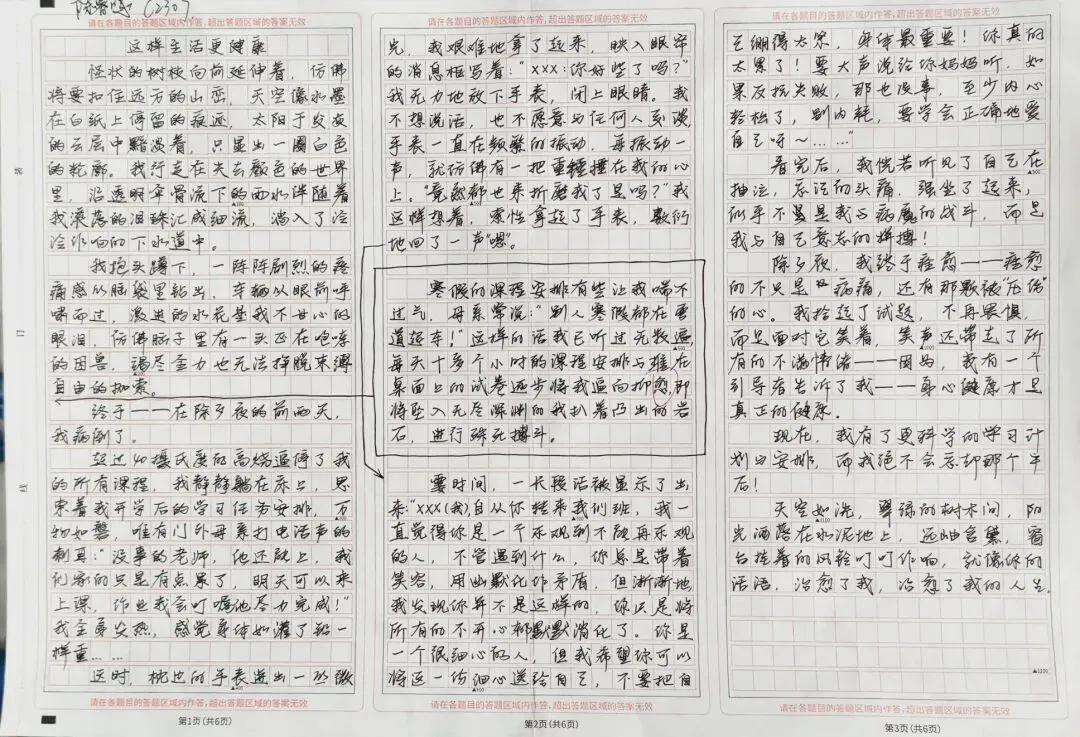 请在各题目的答题区域内作答,超出答题区域的答案无效
这样生活更健康
怪状的树枝向前延伸着，仿佛
将要扣住远方的山峦，天空像水墨
在白纸上停留的痕迹，太阳于发灰
的云层中黯淡着，只显出一圈白色
的轮廓。我行走在失去颜色的世界
里，沿透明伞骨流下的雨水伴随着
我滚落的泪珠汇成细流，淌入了泠
泠作响的下水道中。
我抱头蹲下，一阵阵剧烈的疼
痛感从脑袋里钻出，车辆从眼前呼
啸而过，溅进的水花垫我不甘心的
眼泪，仿佛脑子里有一头正在咆哮
的困兽，竭尽全力也无法挣脱束缚
自由的枷索。
终于——在除夕夜的前两天，
我病倒了。
超过40摄氏度的高烧逼停了我
的所有课程，我静静躺在床上，思
索着我开学后的学习任务安排，万
物如磐，唯有门外母亲打电话声的
刺真："没事的老师，他还能上，我
们家的只是有点累了，明天可以来
上课，作业我会叮嘱他尽力完成！"
我全身炎热，感觉身体如灌了铅一
样重……
这时，枕边的手表迸出一丝微
请在各题目的答题区域内作答,超出答题区域的答案无效
第1页(共6页)
装
订
线
请在各题目的答题区域内作答,超出答题区域的答案无效
光，我艰难地拿了起来，映入眼帘
的消息框写着："xxx：你好些了吗？"
我无力地放下手表，闭上眼睛。我
不想说话，也不愿意与任何人交谈，
手表一直在频繁的振动，每振动一
声，就仿佛有一把重锤捶在我的心
上。"竟然都也来折磨我了是吗？"我
这样想着，索性拿起了手表，敷衍
地回了一声"嗯"。
寒假的课程安排有些让我喘不
过气，母亲常说："别人寒假都在弯
道超车！"这样的话我已听过无数遍，
每天十多个小时的课程安排与堆在
桌面上的试卷逐步将我逼向抑郁，即
将坠入无尽深渊的我扒着凸出的岩
石，进行殊死搏斗。
霎时间，一长段话被显示了出
来："xxx(我)自从你转来我们班，我一
直觉得你是一个乐观到不能再乐观
的人，不管遇到什么，你总是带着
笑容，用幽默化作矛盾，但渐渐地
我发现你并不是这样的，你只是将
所有的不开心都默默消化了。你是
一个很细心的人，但我希望你可以
将这一份细心送给自己，不要把自
请在各题目的答题区域内作答,超出答题区域的答案无效
第2页(共6页)
请在各题目的答题区域内作答,超出答题区域的答案无效
己绷得太紧，身体最重要！你真的
太累了！要大声说给你妈妈听，如
果反抗失败，那也没事，至少内心
轻松了，别内耗，要学会正确地爱
自己呀～……"
看完后，我恍若听见了自己在
抽泣，忘记的头痛，强坐了起来，
似乎不置是我与病魔的战斗，而是
我与自己意志的拼搏！
除夕夜，我终于痊愈——痊愈
的不只是病痛，还有那颗被压伤
的心。我拾起了试题，不再畏惧，
而是面对它笑着，笑声还带走了所
有的不满情绪——因为，我有一个
引导者告诉了我——身心健康才是
真正的健康。
现在，我有了更科学的学习计
划与安排，而我绝不会忘却那个午
后！
天空如洗，翠绿的树木间，阳
光洒落在水泥地上，远山含黛，窗
台挂着的风铃叮叮作响，就像你的
话语，治愈了我，治愈了我的人生。
请在各题目的答题区域内作答,超出答题区域的答案无效
第3页(共6页)